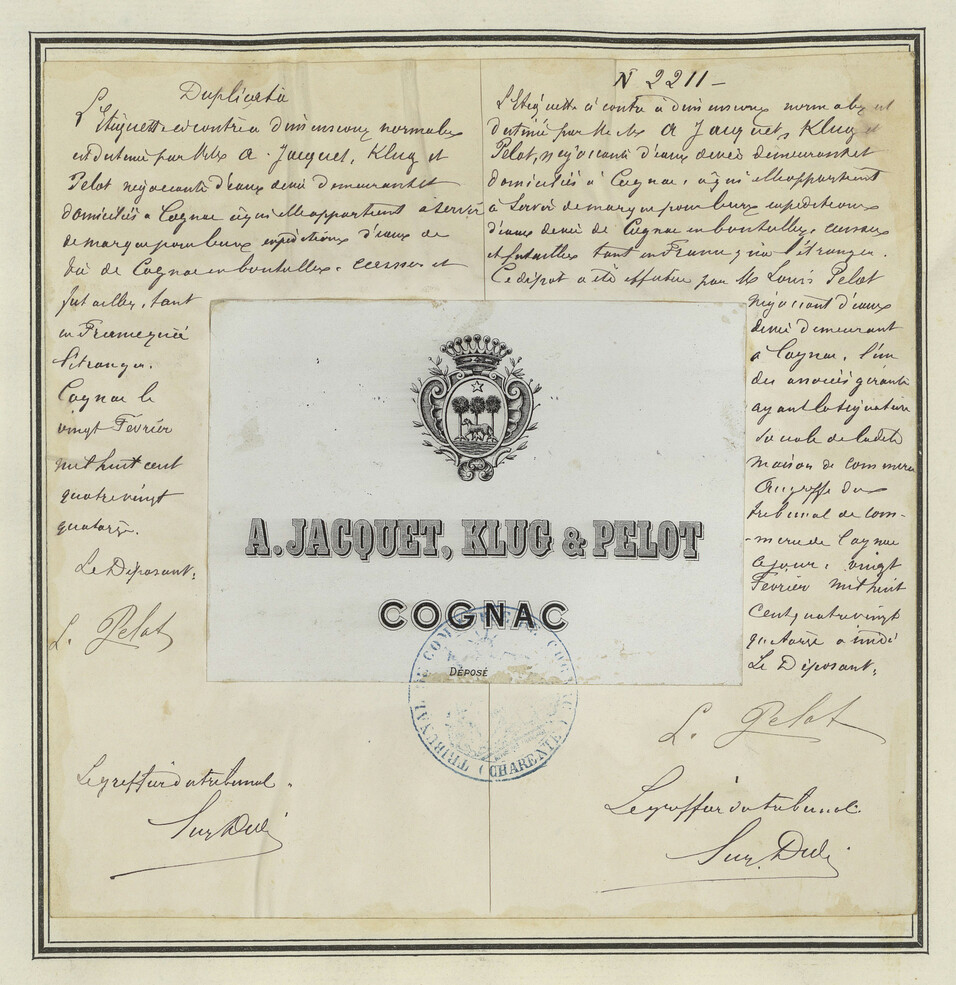 Duplicata
L'étiquette ci contre a dimensions normales
est destinée par M. A. Jacquet, Klug et
Pelot négociants d'eaux de vie demeurant et
domiciliés à Cognac à qui elle appartient a servir
de marque pour leurs expéditions d'eaux de
vie de Cognac en bouteilles, caisses et
futailles, tant
en France qu'à
l'étranger.
Cognac le
vingt Février
mil huit cent
quatre vingt
quatorze.
Le Déposant:
L. Pelot
Le greffier du tribunal.
N 2211 -
L'étiquette ci contre à dimensions normales est
destinée par A. Jacquet, Klug et
Pelot, négociants d'eaux de vie demeurant et
domiciliés à Cognac, à qui elle appartient
à servir de marque pour leurs expéditions
d'eaux de vie de Cognac en bouteilles, caisses
et futailles tant en France qu'à l'étranger.
Ce dépôt a été effectué par M. Louis Pelot
négociant d'eaux
de vie demeurant
à Cognac, l'un
des associés gérants
ayant la signature
sociale de la dite
maison de commerce
Au greffe du
tribunal de com-
-merce de Cognac
ce jour, vingt
Février mil huit
cent quatre vingt
quatorze à midi
Le Déposant:
L. Pelot
Le greffier du tribunal.
A. JACQUET, KLUG & PELOT
COGNAC
DÉPOSÉ
TRIBUNAL DE COMMERCE DE COGNAC (CHARENTE)